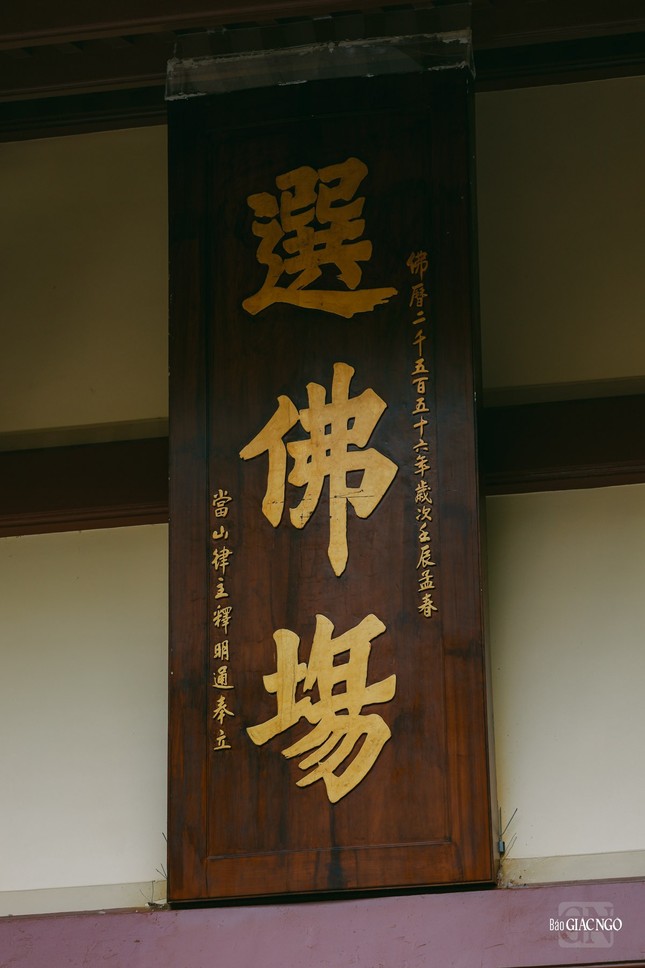 選佛場
佛曆二千五百五十六年歲次壬辰孟春
當山律主釋明通奉立
Báo GIÁC NGỘ
GN